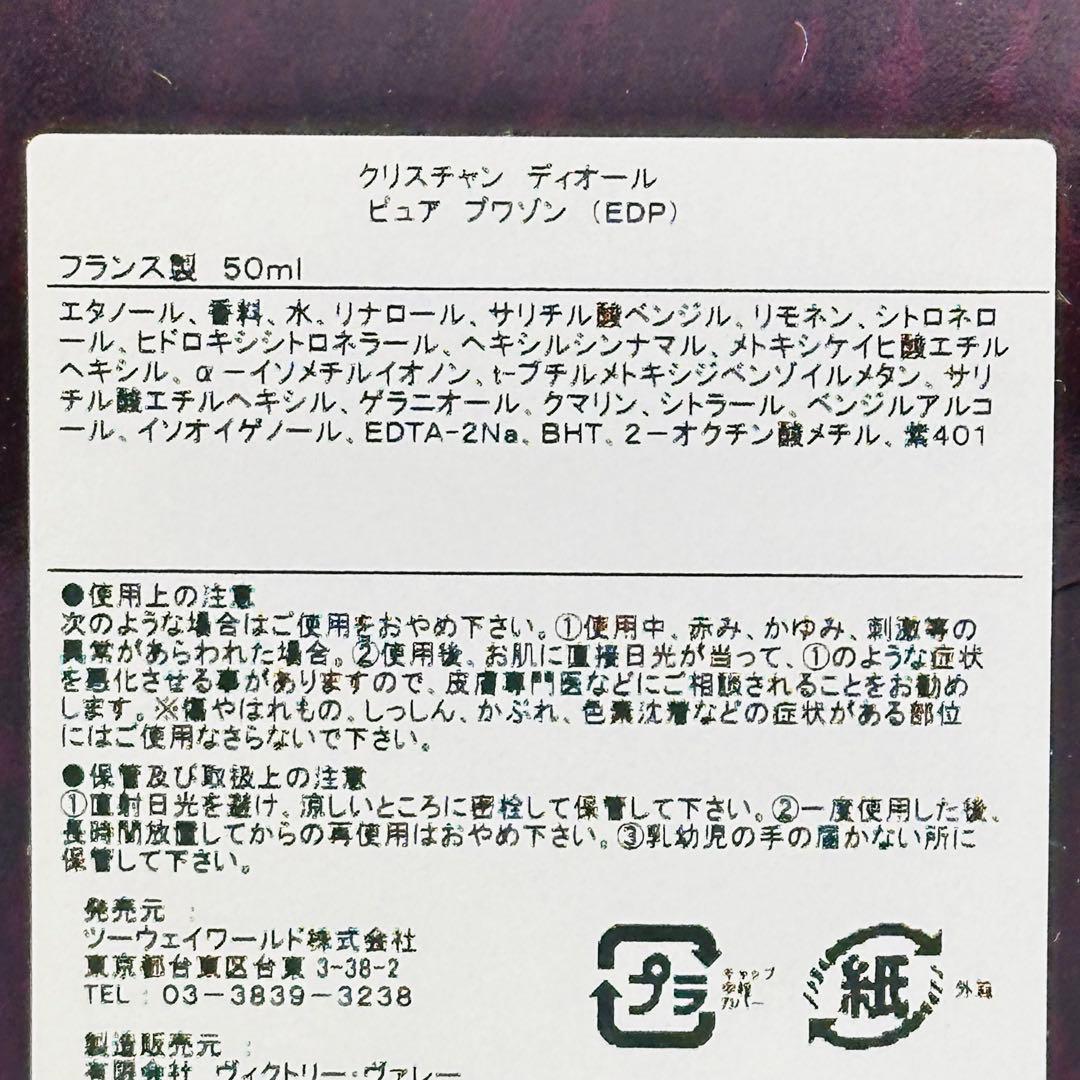 クリスチャン ディオール
ピュア プワゾン (EDP)
フランス製 50ml
エタノール、香料、水、リナロール、サリチル酸ベンジル、リモネン、シトロネロ
ール、ヒドロキシシトロネラール、ヘキシルシンナマル、メトキシケイヒ酸エチル
ヘキシル、α－イソメチルイオノン、t-ブチルメトキシジベンゾイルメタン、サリ
チル酸エチルヘキシル、ゲラニオール、クマリン、シトラール、ベンジルアルコ
ール、イソオイゲノール、EDTA-2Na、BHT、2－オクチン酸メチル、紫401
●使用上の注意
次のような場合はご使用をおやめ下さい。①使用中、赤み、かゆみ、刺激等の
異常があらわれた場合。②使用後、お肌に直接日光が当って、①のような症状
を悪化させる事がありますので、皮膚専門医などにご相談されることをお勧め
します。※傷やはれもの、しっしん、かぶれ、色素沈着などの症状がある部位
にはご使用なさらないで下さい。
●保管及び取扱上の注意
①直射日光を避け、涼しいところに密栓して保管して下さい。②一度使用した後、
長時間放置してからの再使用はおやめ下さい。③乳幼児の手の届かない所に
保管して下さい。
発売元 :
ツーウェイワールド株式会社
東京都台東区台東 3-38-2
TEL : 03－3839－3238
プラ
キャップ
紙
外箱
製造販売元 :
有限会社 ヴィクトリー・ヴァレー